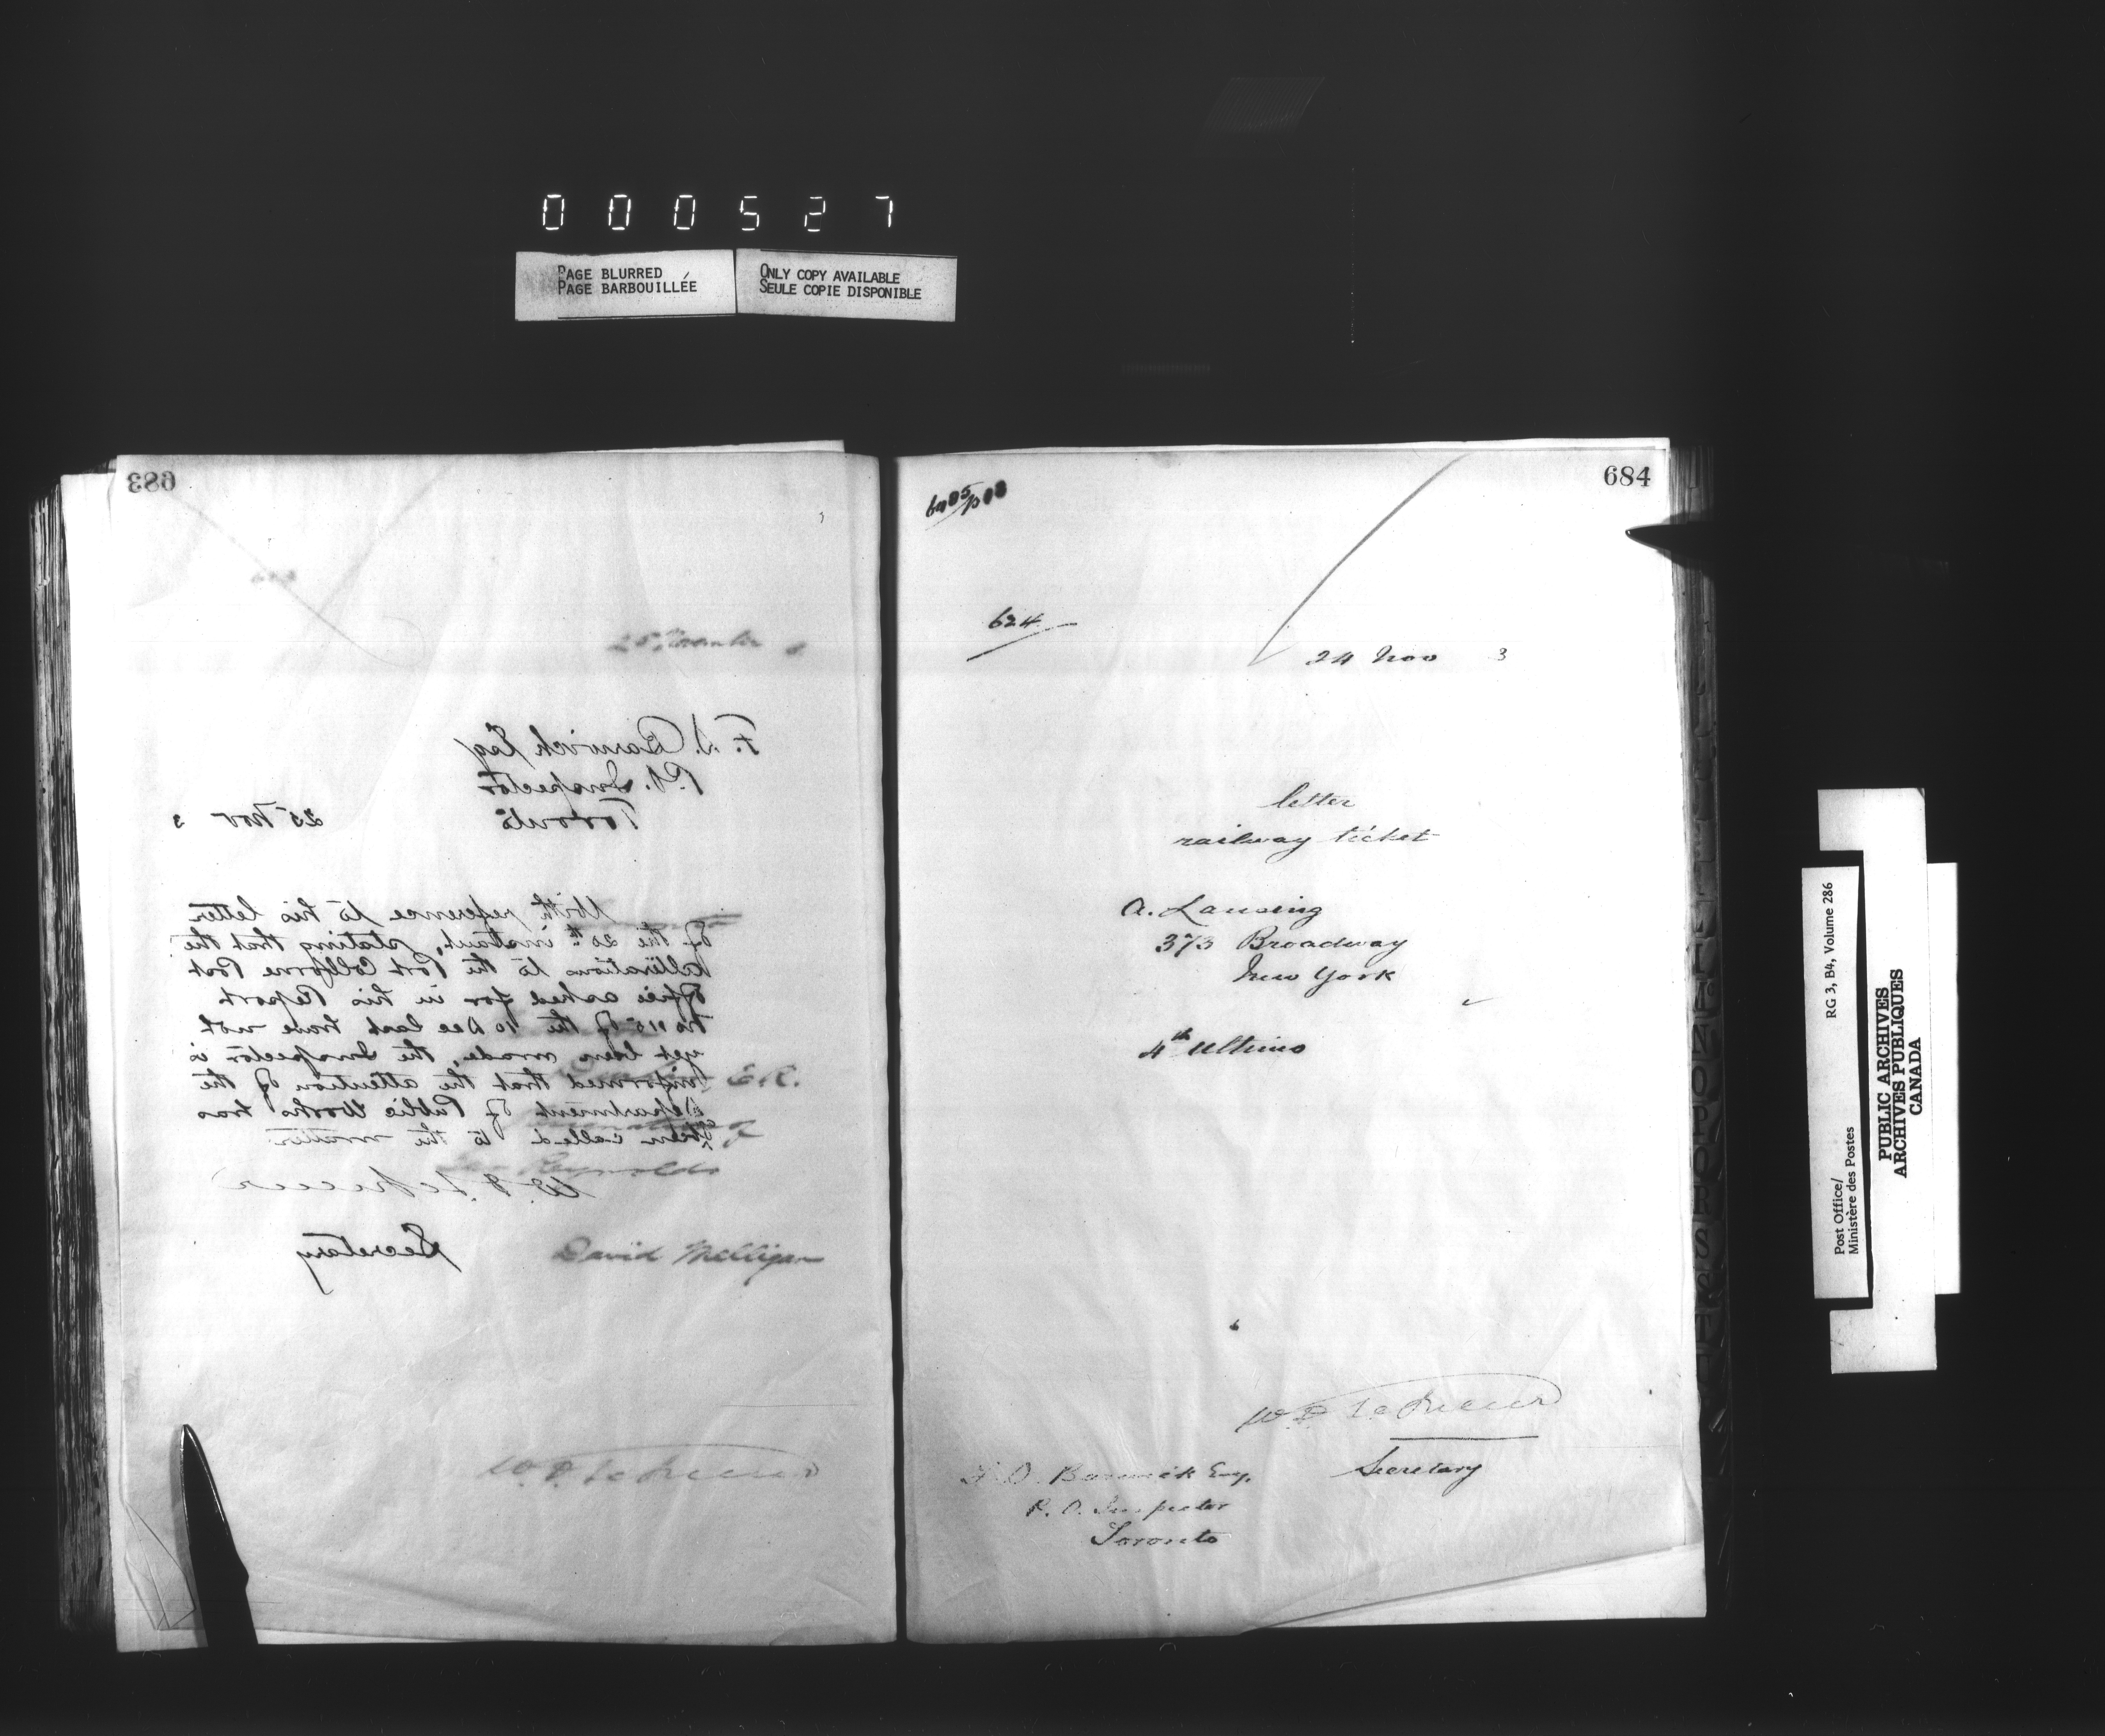 000527
PAGE BLURRED
PAGE BARBOUILLÉE
ONLY COPY AVAILABLE
SEULE COPIE DISPONIBLE
683
25 November
F. D. Barwick Esq
P.O. Inspector
Toronto
25 Nov 3
With reference to his letter
of the 20th instant, stating that the
alterations to the Port Colborne Post
Office asked for in his Report
No 115 of the 10 Dec last have not
yet been made, the Inspector is
informed that the attention of the
Department of Public Works has
been called to the matter
W. D. LeSueur
Secretary
E.R.
of
Reynolds
David Milligan
W. D. LeSueur
684
624
24 Nov 3
letter
railway ticket
A. Lansing
373 Broadway
New York
4th Ultimo
W. D. LeSueur
Secretary
F. D. Barwick Esq.
P. O. Inspector
Toronto
Post Office/
Ministère des Postes
RG 3, B4, Volume 286
PUBLIC ARCHIVES
ARCHIVES PUBLIQUES
CANADA